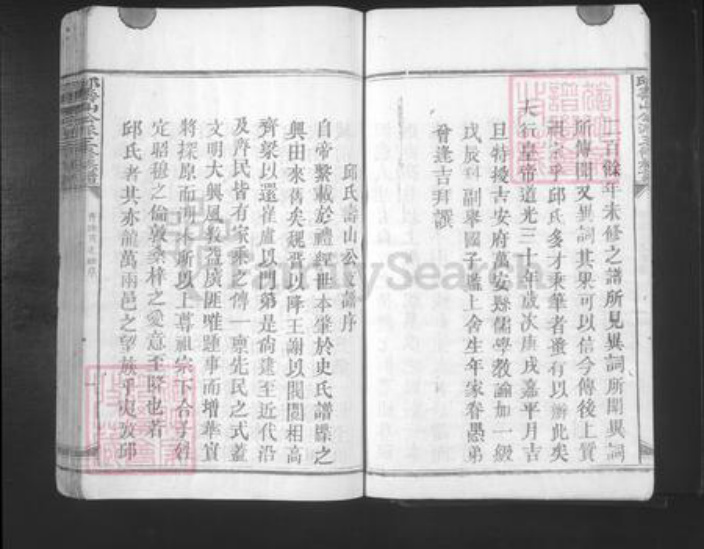 二百餘年未修之譜所見異詞所聞異詞
所傳聞又異詞其果可以信今傳後上質
祖宗乎邱氏多才秉筆者蚤有以辦此矣
大行皇帝道光三十年歲次庚戌嘉平月吉
旦特授吉安府萬安縣儒學教諭加一級
戊辰科副舉國子監上舍生年家眷愚弟
曾逢吉拜譔
邱氏壽山公支譜序
自帝繫載於禮經世本肇於史氏譜牒之
興由來舊矣魏晋以降王謝以閥閱相高
齊梁以還崔盧以門第是尚遠至近代沿
及齊民皆有家乘之傳一稟先民之式蓋
文明大興風教益廣匪唯踵事而增華實
將探原而明本所以上尊祖宗下合子姓
定昭穆之倫敦桑梓之愛意至隆也若
邱氏者其亦龍萬兩邑之望族乎爰攷邱
邱壽山公派
FamilySearch